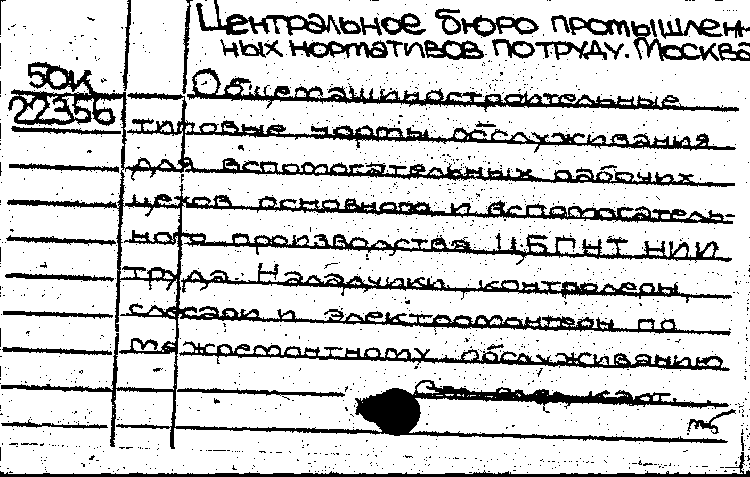 Центральное бюро промышлен-
ных нормативов по труду. Москва
50К
22356
Общемашиностроительные
типовые нормы обслуживания
для вспомогательных рабочих
цехов основного и вспомогатель-
ного производства ЦБПНТ НИИ
труда. Наладчики, контролеры,
слесари и электромонтеры по
межремонтному обслуживанию
См. след. карт.